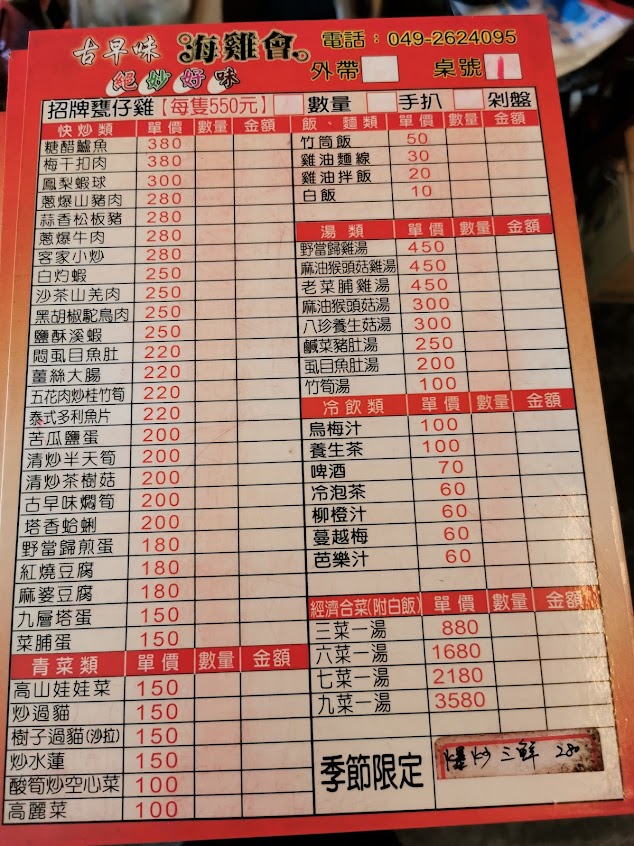 古早味 海雞會 電話：049-2624095
絕妙好味 外帶 桌號 1
招牌甕仔雞【每隻550元】 數量 手扒 剁盤
快炒類 單價 數量 金額
糖醋鱸魚 380
梅干扣肉 380
鳳梨蝦球 300
蔥爆山豬肉 280
蒜香松板豬 280
蔥爆牛肉 280
客家小炒 280
白灼蝦 250
沙茶山羌肉 250
黑胡椒鴕鳥肉 250
鹽酥溪蝦 250
悶虱目魚肚 220
薑絲大腸 220
五花肉炒桂竹筍 220
泰式多利魚片 220
苦瓜鹽蛋 200
清炒半天筍 200
清炒茶樹菇 200
古早味燜筍 200
塔香蛤蜊 200
野當歸煎蛋 180
紅燒豆腐 180
麻婆豆腐 180
九層塔蛋 150
菜脯蛋 150
青菜類 單價 數量 金額
高山娃娃菜 150
炒過貓 150
樹子過貓(沙拉) 150
炒水蓮 150
酸筍炒空心菜 100
高麗菜 100
飯、麵類 單價 數量 金額
竹筒飯 50
雞油麵線 30
雞油拌飯 20
白飯 10
湯類 單價 數量 金額
野當歸雞湯 450
麻油猴頭菇雞湯 450
老菜脯雞湯 450
麻油猴頭菇湯 300
八珍養生菇湯 300
鹹菜豬肚湯 250
虱目魚肚湯 200
竹筍湯 100
冷飲類 單價 數量 金額
烏梅汁 100
養生茶 100
啤酒 70
冷泡茶 60
柳橙汁 60
蔓越梅 60
芭樂汁 60
經濟合菜(附白飯) 單價 數量 金額
三菜一湯 880
六菜一湯 1680
七菜一湯 2180
九菜一湯 3580
季節限定 爆炒三鮮 280